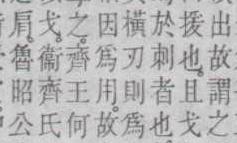 出故謂之
援也。且戈
於刺者也
橫刃則爲
因爲用。故
之。齊王何
戈。衞齊氏
肩。魯昭公